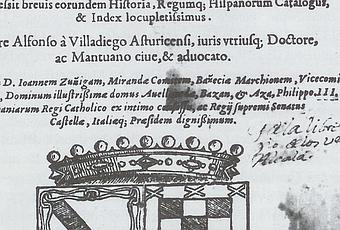 essit breuis eorundem Historia, Regumq; Hispanorum Catalogus,
& Index locupletissimus.
re Alfonso à Villadiego Asturicensi, iuris vtriusq; Doctore,
ac Mantuano ciue, & aduocato.
D. Ioannem Zuñigam, Mirandæ Comitem, Bañeciæ Marchionem, Vicecomi
, Dominum illustrissimæ domus Auell Bazan, & Aza, Philippo. III.
aniarum Regi Catholico ex intimo ac Regij supremi Senatus
Castellæ, Italiæq; Præsidem dignissimum.
libre